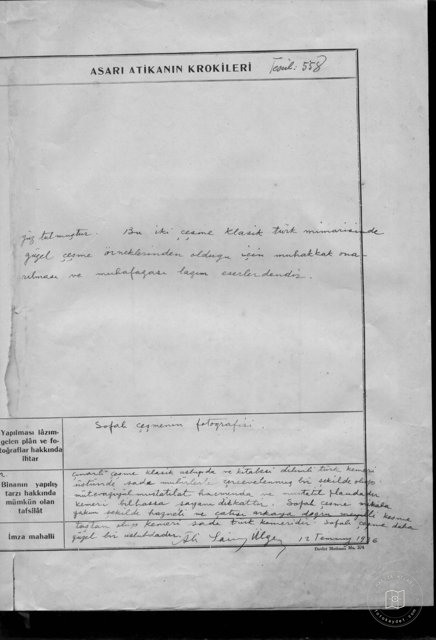 ASARI ATİKANIN KROKİLERİ Tescil: 558
yüz tutmuştur. Bu iki çeşme klasik türk mimarisinde
güzel çeşme örneklerinden olduğu için muhakkak ona-
rılması ve muhafazası lazım eserlerdendir.
Yapılması lâzım-
gelen plân ve fo-
toğraflar hakkında
ihtar
Sofalı çeşmenin fotoğrafisi.
Binanın yapılış
tarzı hakkında
mümkün olan
tafsilât
Çınarlı çeşme klasik uslupda ve kitabesi dilimli türk kemeri
üstünde sade muhirlerle çerçevelenmiş bir şekilde olup
mütemayil mustatilat haznında ve mustatil
kemeri bilhassa şayanı dikkattir. Sofalı çeşme mikaba
yakın şekilde hazneli ve çatısı arkaya doğru meyilli kesme
taştan olup kemeri sade türk kemeridir. Sofalı çeşme daha
güzel bir uslubdadır. Ali Saim Ülgen 12 Temmuz 1936
İmza mahalli
Devlet Matbaası No. 374